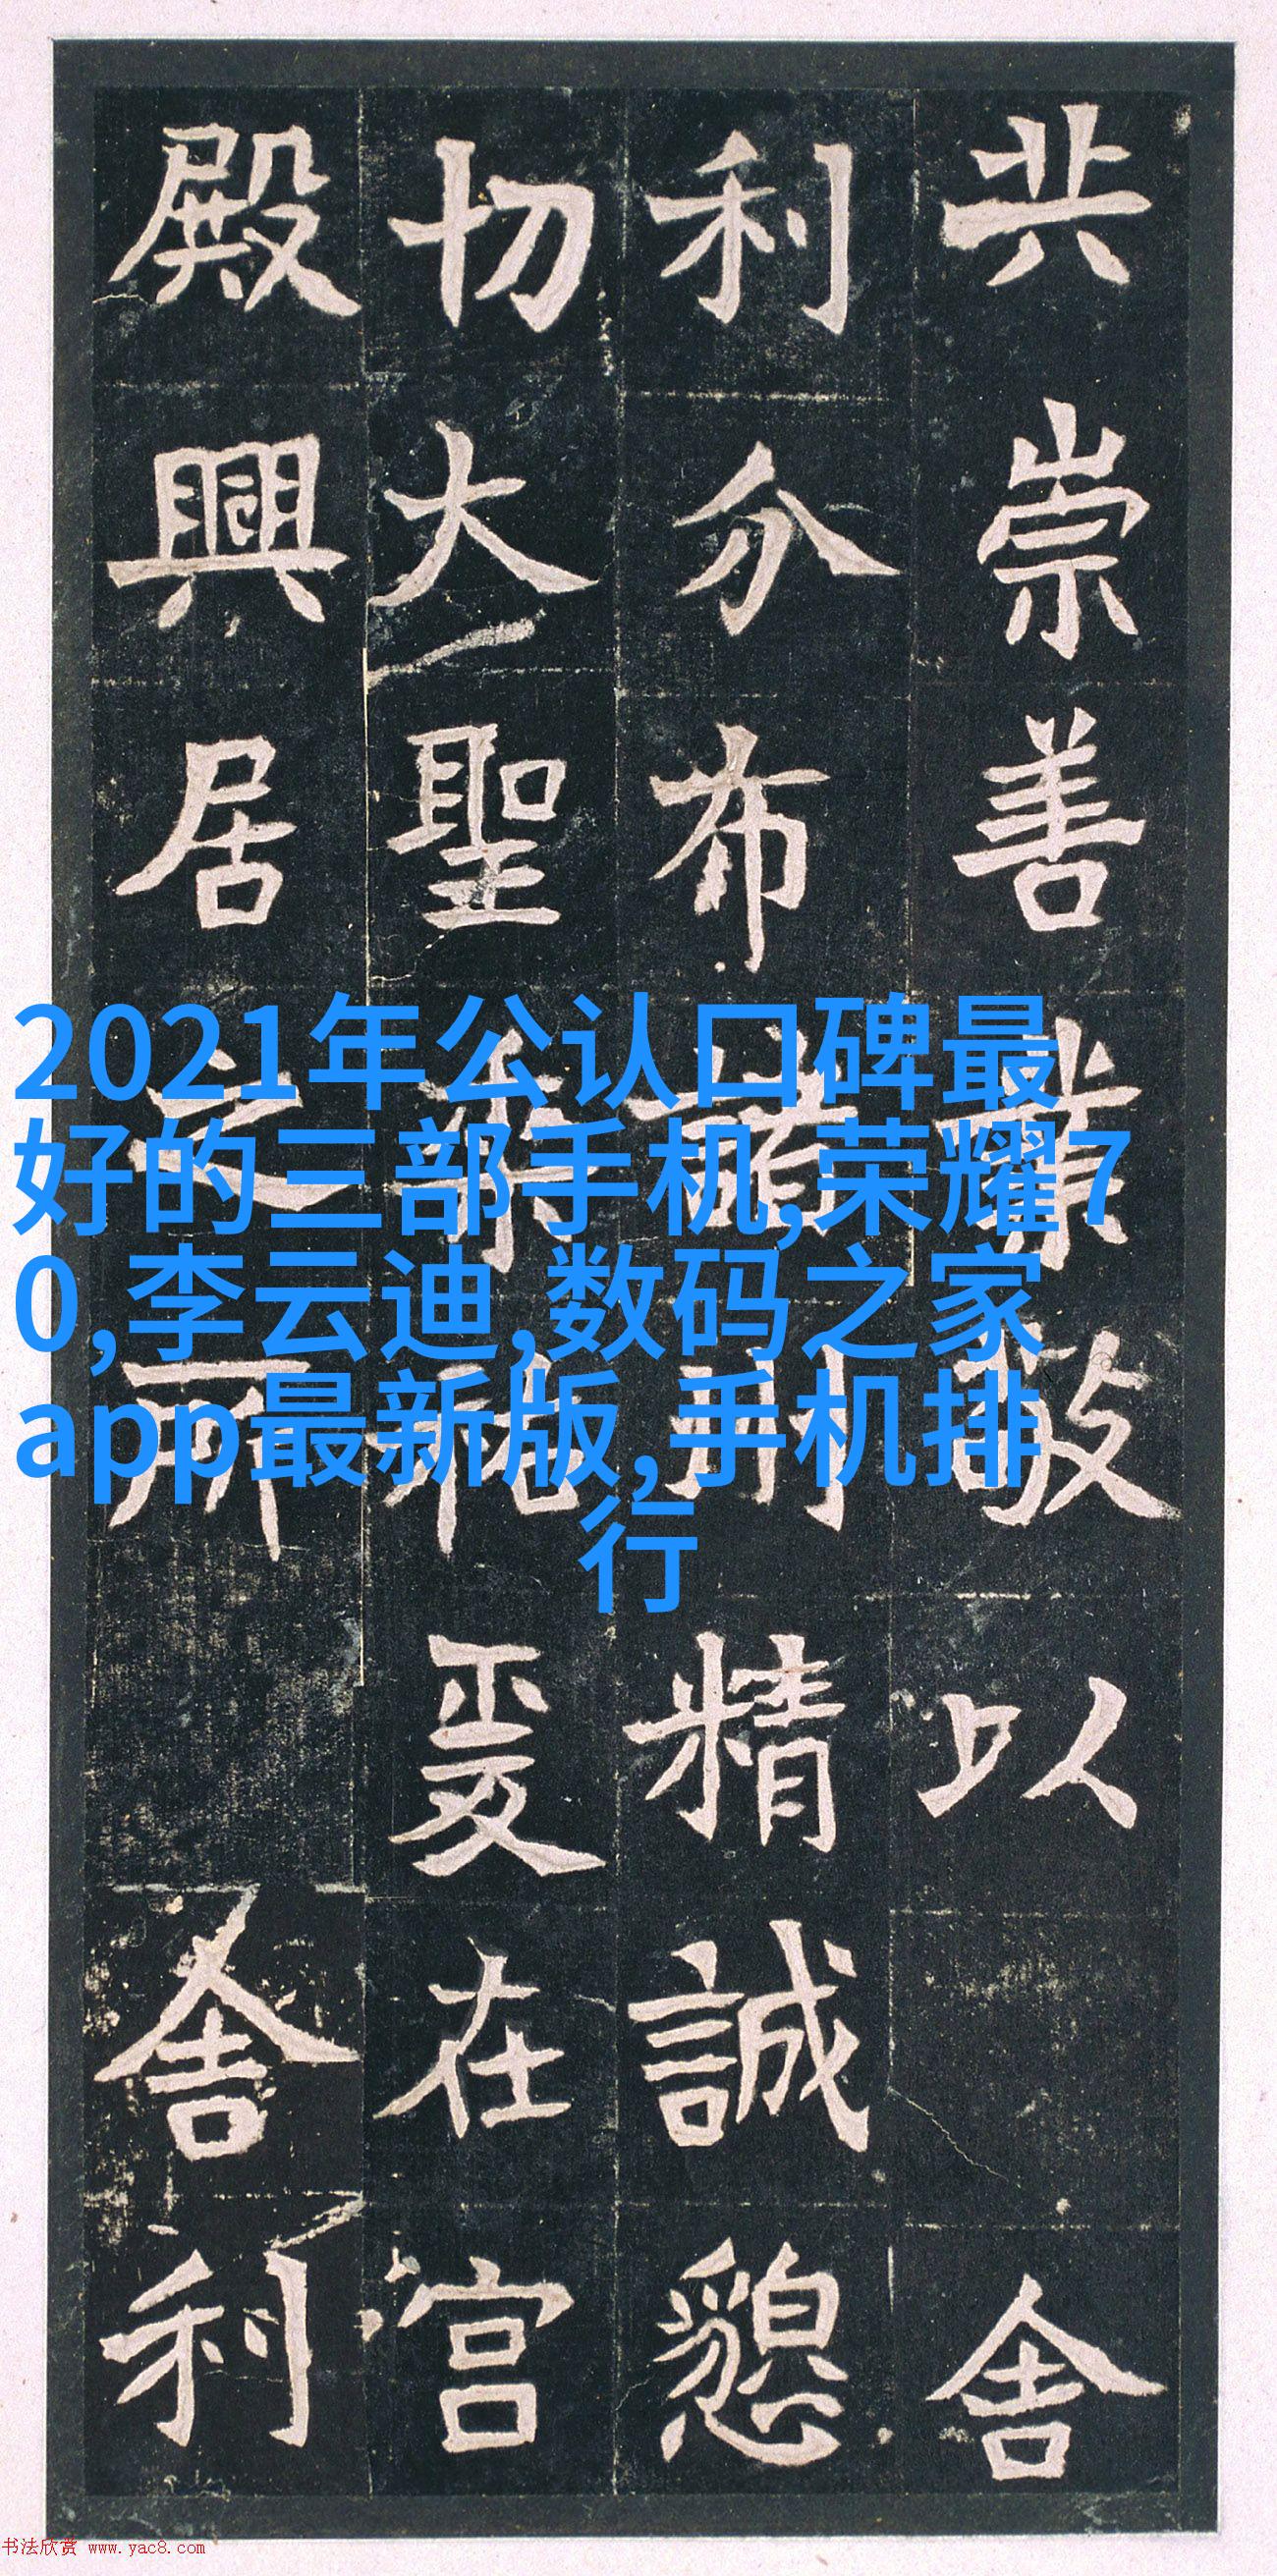 共崇善業敬以舍
利分布諸州精誠懇
切大聖垂祐爰在宫
殿興居之所舍利
2021年公认口碑最
好的三部手机,荣耀7
0,李云迪,数码之家
app最新版,手机排
行
书法欣赏 www.yac8.com